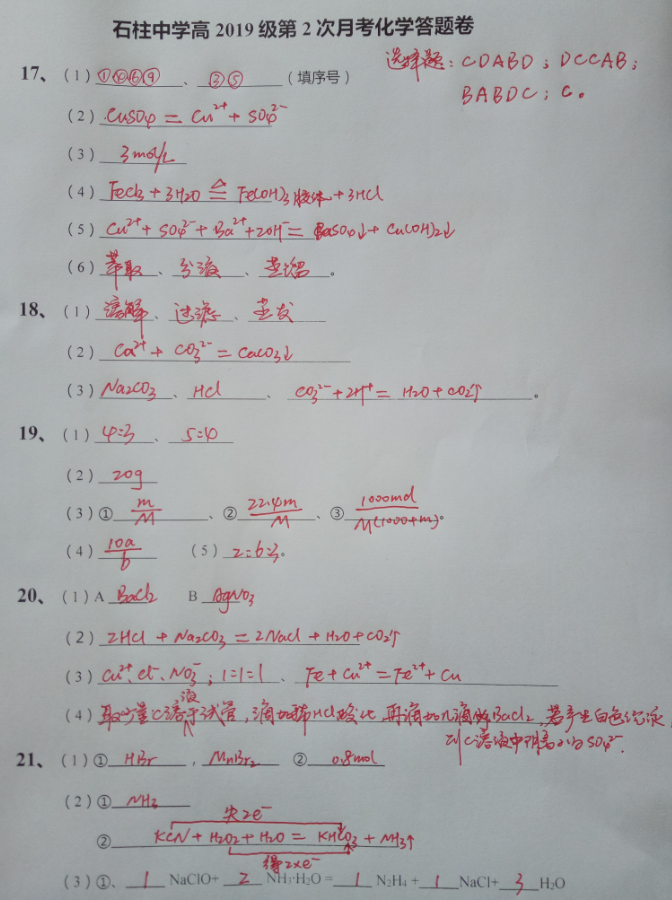 石柱中学高 2019 级第 2 次月考化学答题卷
选择题：CDABD；DCCAB；
BABDC；C。
17、（1）①⑩⑥⑨、③⑤（填序号）
（2）CuSO4 = Cu²⁺ + SO4²⁻
（3）3mol/L
（4）FeCl3 + 3H2O ≜ Fe(OH)3胶体 + 3HCl
（5）Cu²⁺ + SO4²⁻ + Ba²⁺ + 2OH⁻ = BaSO4↓ + Cu(OH)2↓
（6）萃取、分液、蒸馏。
18、（1）溶解、过滤、蒸发
（2）Ca²⁺ + CO3²⁻ = CaCO3↓
（3）Na2CO3、HCl、CO3²⁻ + 2H⁺ = H2O + CO2↑。
19、（1）4:3、5:4
（2）20g
（3）① m/M、② 22.4m/M、③ 1000md/M(1000+m)。
（4）10a/b （5）2:6:3。
20、（1）A BaCl2 B AgNO3
（2）2HCl + Na2CO3 = 2NaCl + H2O + CO2↑
（3）Cu²⁺、Cl⁻、NO3⁻；1:1:1、Fe + Cu²⁺ = Fe²⁺ + Cu
（4）取少量C溶液于试管，滴加稀HCl酸化，再滴加几滴BaCl2，若产生白色沉淀，
则C溶液中SO4²⁻.
21、（1）① HBr，MnBr2 ② 0.8mol
（2）① NH3
失2e⁻
② KCN + H2O2 + H2O = KHCO3 + NH3↑
得2×e⁻
（3）①、1 NaClO+ 2 NH3·H2O = 1 N2H4 + 1 NaCl+ 3 H2O